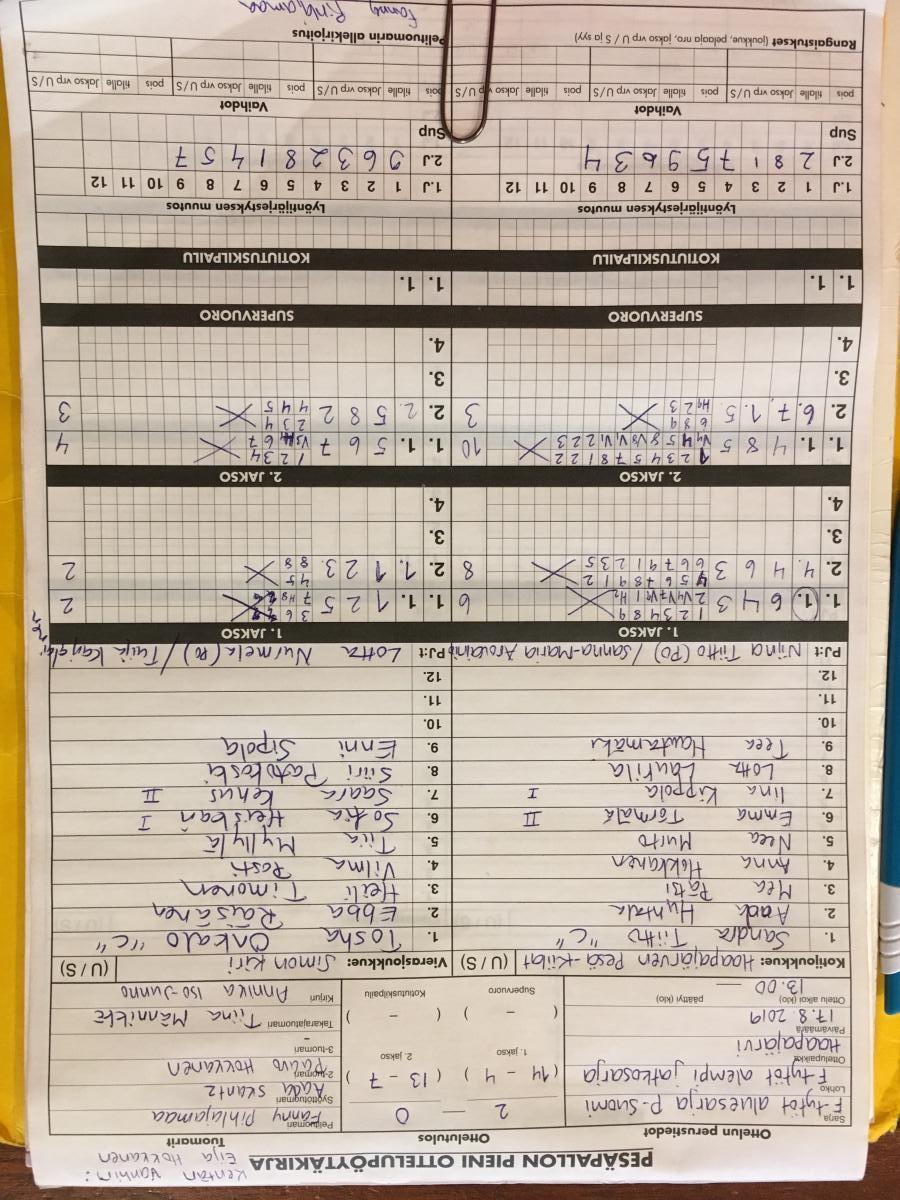 Kentän vanhin:
Eija Hokkanen
PESÄPALLON PIENI OTTELUPÖYTÄKIRJA
Ottelun perustiedot
Ottelutulos
Tuomarit
Sarja F-tytöt aluesarja P-Suomi
Lohko F-tytöt alempi jatkosarja
Ottelupaikka Haapajärvi
Päivämäärä 17.8.2019
Ottelu alkoi (klo) 13.00 päättyi (klo) —
2 — 0
( 14 - 4 ) ( 13 - 7 )
1. jakso 2. jakso
( - ) ( - )
Supervuoro Kotiutuskilpailu
Pelituomari Fanny Pihlajamaa
Syöttötuomari Aada Skantz
2-tuomari Paavo Hokkanen
3-tuomari -
Takarajatuomari Tiina Männikkö
Kirjuri Annika Iso-Junno
Kotijoukkue: Haapajärven Pesä-Kiilat (U / S)
1. Sandra Tiitto "C"
2. Aada Huhtala
3. Mea Pätsi
4. Anna Hokkanen
5. Neea Murto
6. Emma Törmälä II
7. Iina Kippola I
8. Lotta Laurila
9. Teea Hautamäki
10.
11.
12.
PJ:t Niina Tiitto (PO) / Sanna-Maria Arovainio
Vierasjoukkue: Simon Kiri (U / S)
1. Tosha Onkalo "C"
2. Ebba Räisänen
3. Heili Timonen
4. Vilma Posti
5. Tiia Myllylä
6. Sofia I
7. Saara Kenus II
8. Siiri Pastokoski
9. Enni Sipola
10.
11.
12.
PJ:t Lotta Nurmela (PO) / Tuija
1. JAKSO
1. 1. 6 4 3 1 2 3 4 8 9 6
2. 4. 4 6 3 4 5 6 7 8 9 1 2 8
6 6 6 7 9 1 2 3 5
3.
4.
1. JAKSO
1. 1. 1 2 5 3 6 2
2. 1. 1 2 3 4 5 2
8 8
3.
4.
2. JAKSO
1. 1. 4 8 5 1 2 3 4 5 7 8 1 2 2 10
2. 6. 7. 1. 5 6 8 9 3
H9 2 3
3.
4.
2. JAKSO
1. 1. 5 6 7 1 2 3 4 4
2. 2. 5 8 2 2 3 4 3
4 4 5
3.
4.
SUPERVUORO
1. 1.
SUPERVUORO
1. 1.
KOTIUTUSKILPAILU
KOTIUTUSKILPAILU
Lyöntijärjestyksen muutos
1.J 1 2 3 4 5 6 7 8 9 10 11 12
2.J 2 8 1 7 5 9 6 3 4
Sup
Lyöntijärjestyksen muutos
1.J 1 2 3 4 5 6 7 8 9 10 11 12
2.J 9 6 3 2 8 1 4 5 7
Sup
Vaihdot
pois tilalle Jakso vrp U / S pois tilalle Jakso vrp U / S pois tilalle Jakso vrp U / S
Vaihdot
pois tilalle Jakso vrp U / S pois tilalle Jakso vrp U / S pois tilalle Jakso vrp U / S
Rangaistukset (joukkue, pelaaja, nro, jakso vrp U / S ja syy)
Pelituomarin allekirjoitus
Fanny Pihlajamaa